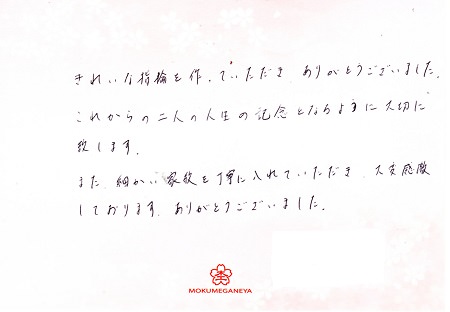 きれいな指輪を作っていただき、ありがとうございました。
これからの二人の人生の記念となるように大切に
致します。
また、細かい家紋を丁寧に入れていただき、大変感激
しております。ありがとうございました。
MOKUMEGANEYA